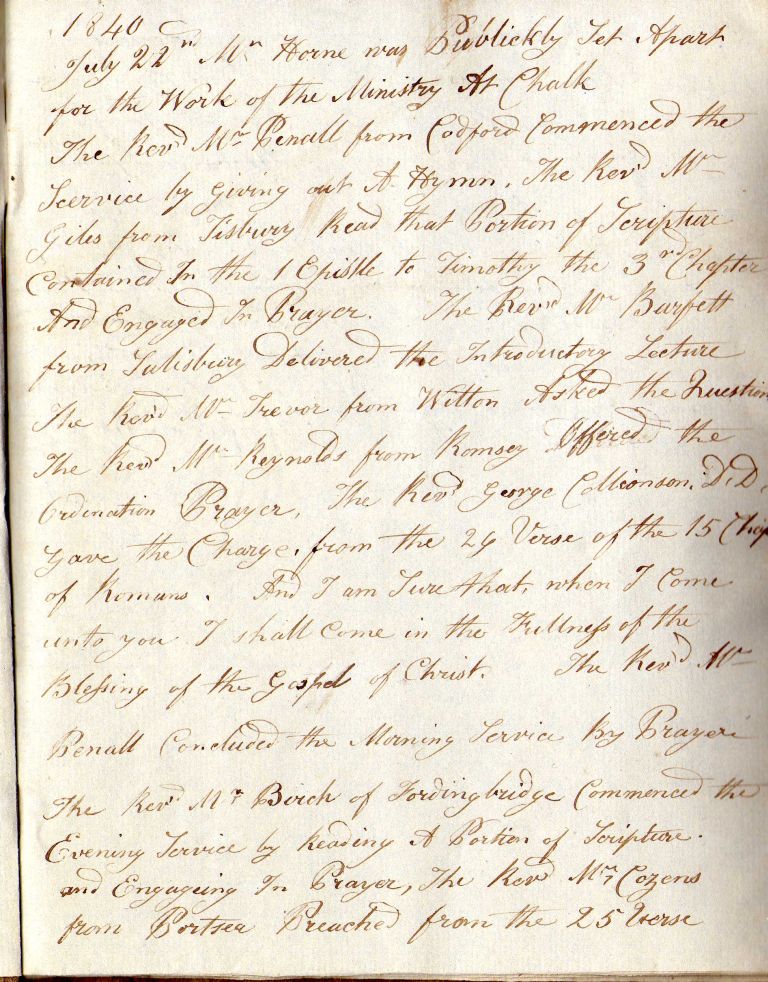 1840
July 22n Mr Horne was Publickly Set Apart
for the Work of the Ministry At Chalk
The Revd Mr Penall from Codford Commenced the
Scervice by Giving out A Hymn, The Revd Mr
Giles from Tisbury Read that Portion of Scripture
Contained In the 1 Epistle to Timothy the 3rd Chapter
And Engaged In Prayer. The Revd Mr Barfett
from Salisbury Delivered the Introductory Lecture
The Revd Mr Trevor from Wilton Asked the Question
The Revd Mr Reynolds from Romsey Offered the
Ordination Prayer, The Revd George Collionson. D.D.
Gave the Charge. from the 29 Verse of the 15 Chap
of Romans. And I am Sure that, when I Come
unto you I shall Come in the Fullness of the
Blessing of the Gospel of Christ. The Revd Mr
Penall Concluded the Morning Service By Prayer
The Revd Mr Birch of Fordingbridge Commenced the
Evening Service by Reading A Portion of Scripture.
and Engageing In Prayer, The Revd Mr Cozens
from Portsea Preached from the 25 Verse